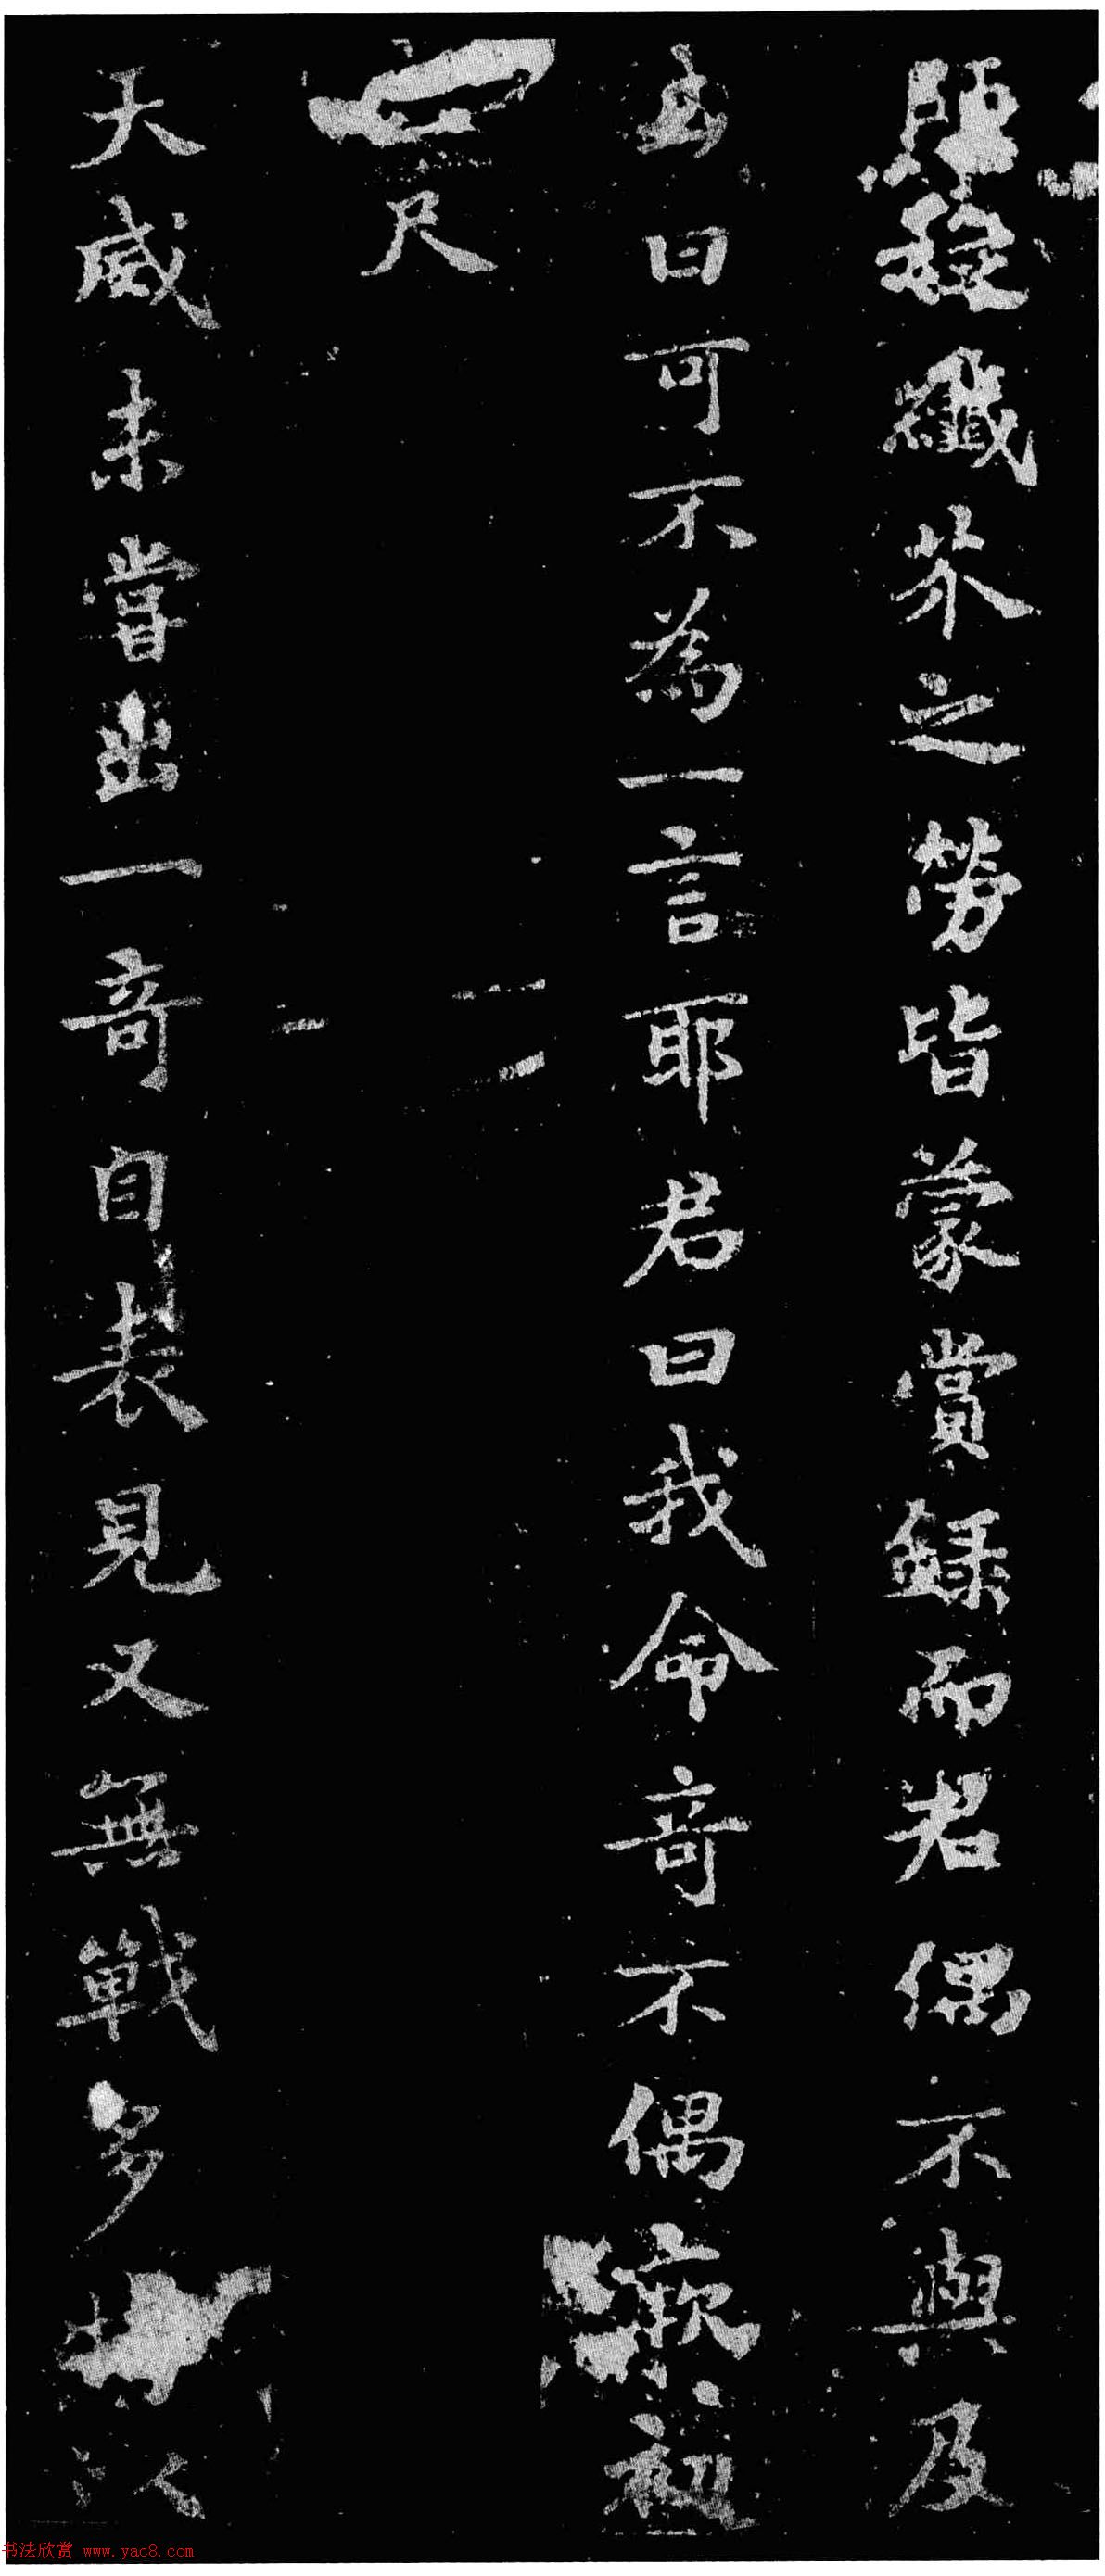 歷纖芥之勞皆蒙賞錄而君偶不與及
曰可不為一言耶君曰我命奇不偶歟初
尺
天威未嘗出一奇自表見又無戰多以
书法欣赏 www.yac8.com